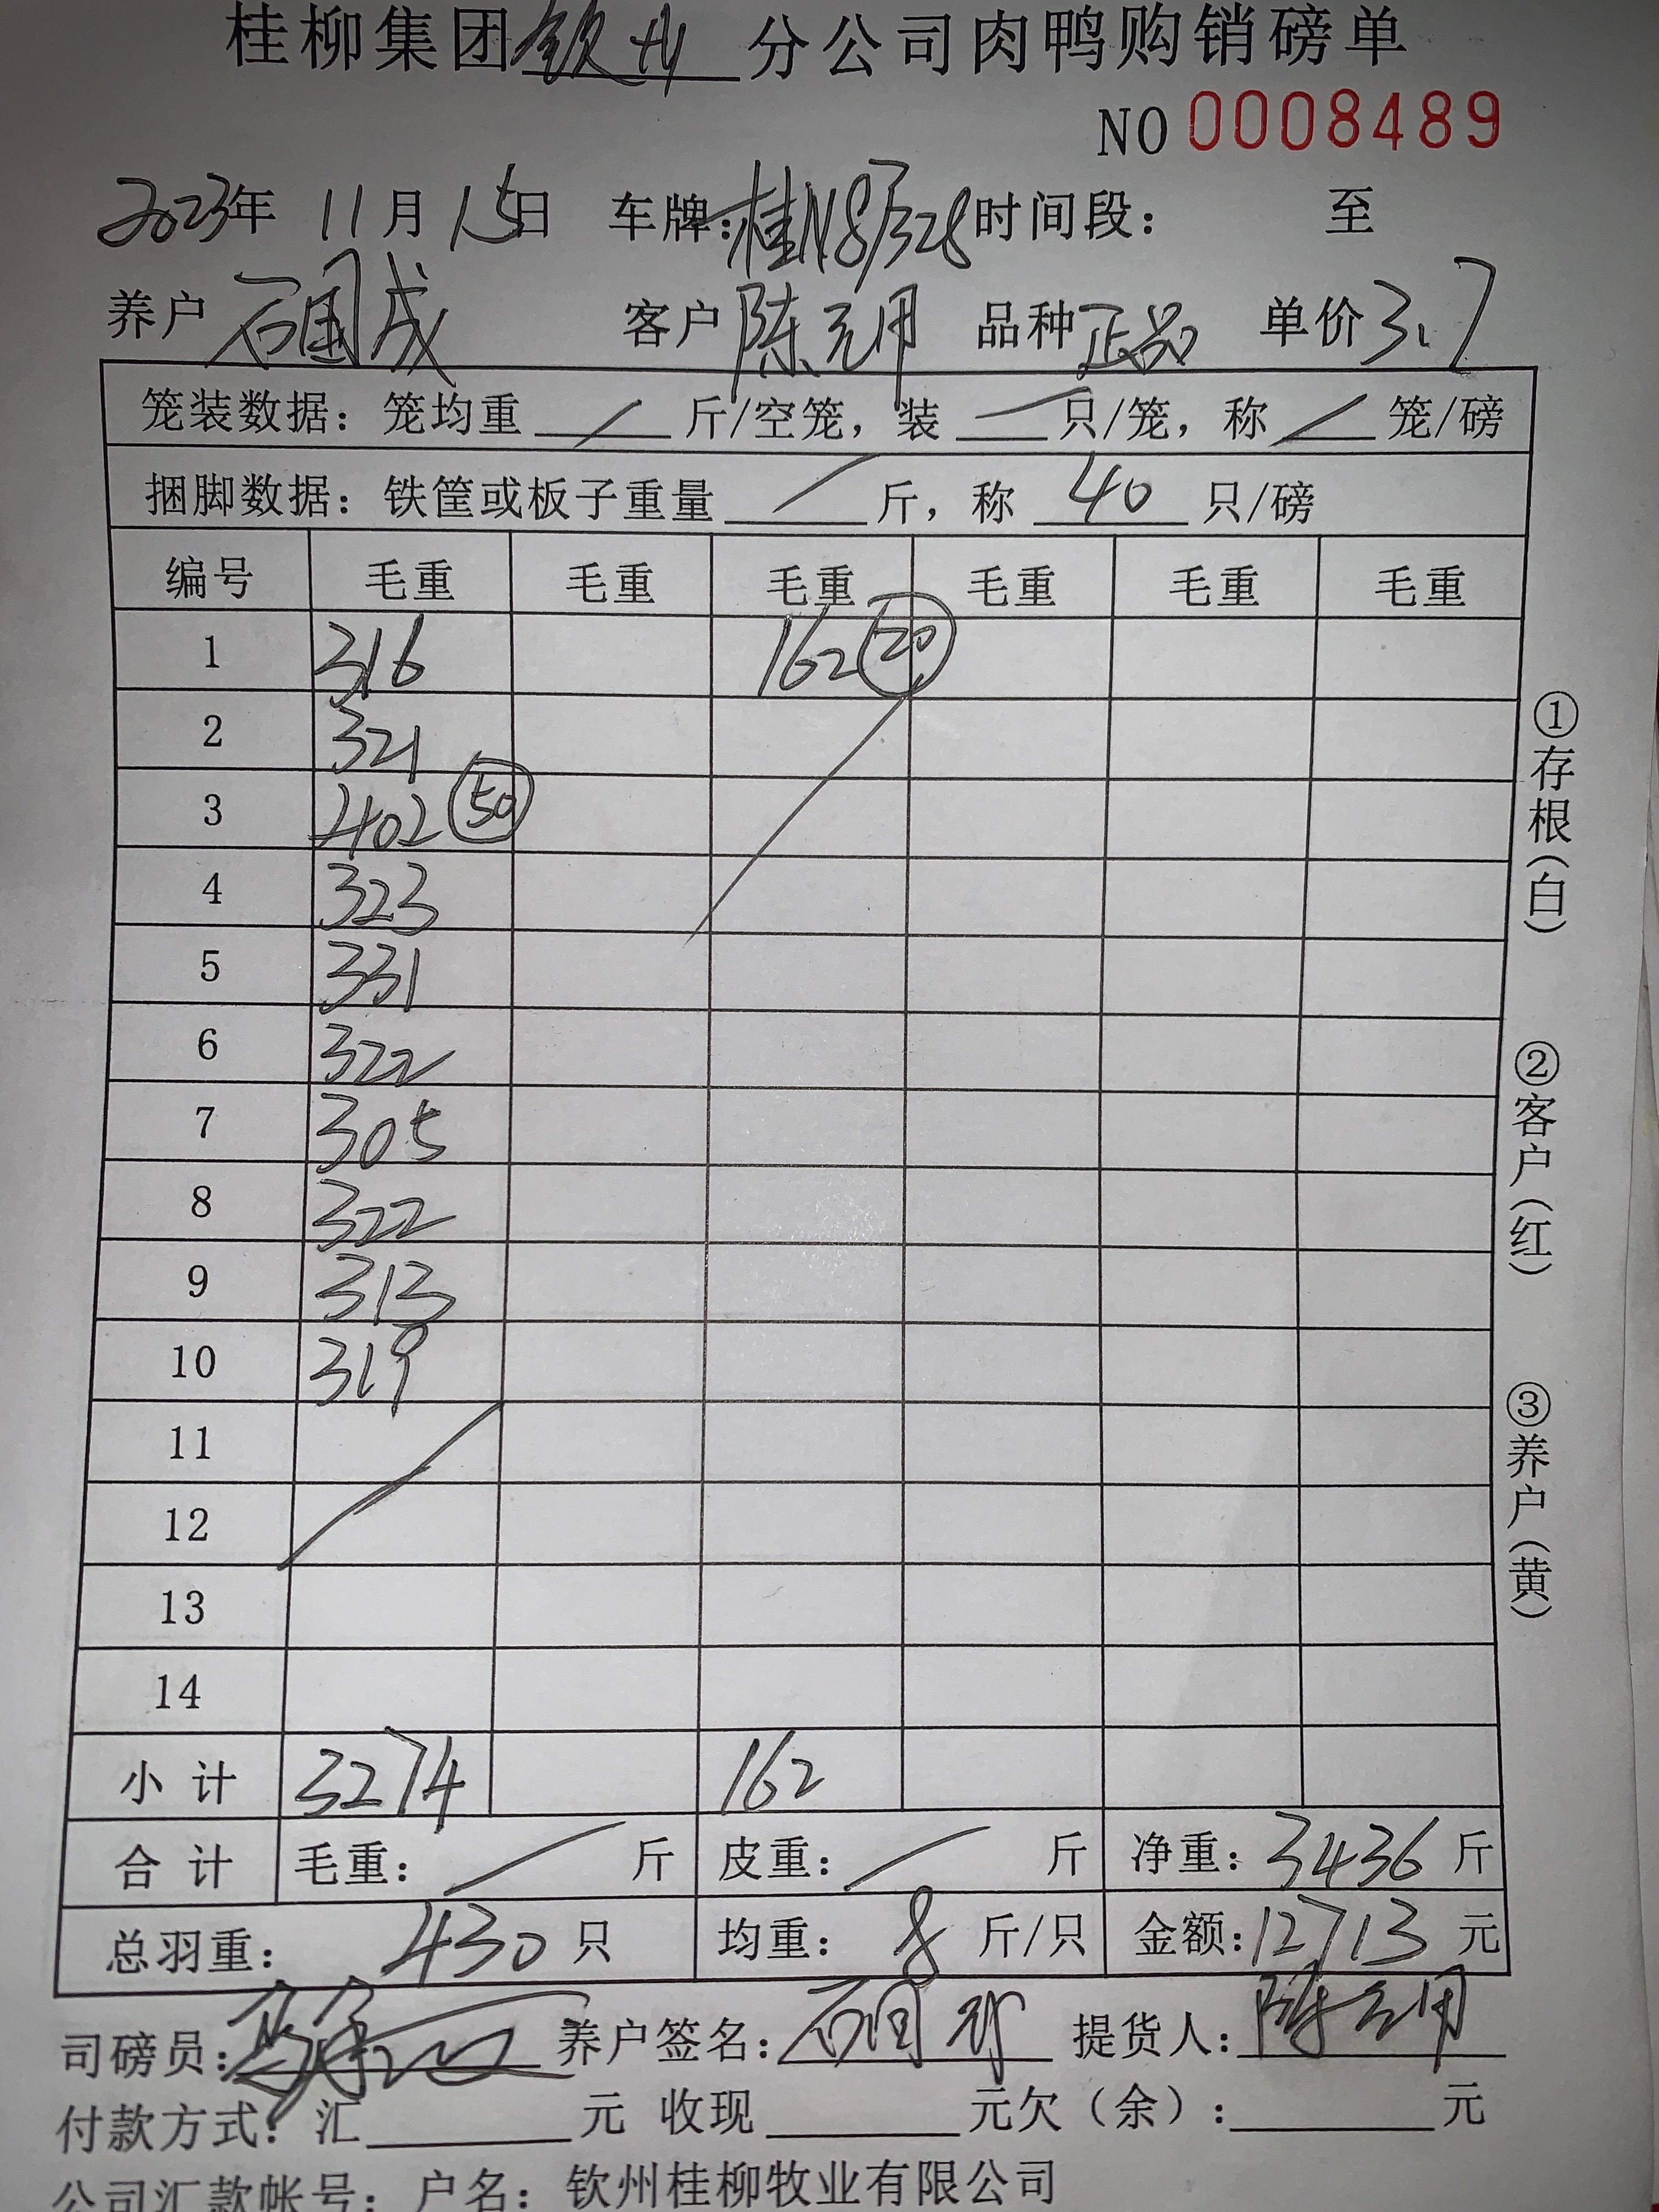 桂柳集团钦州分公司肉鸭购销磅单
NO 0008489
2023年 11月 15日 车牌:桂N8J328 时间段: 至
养户 石国成 客户 陈元月 品种 正品 单价 3.7
笼装数据: 笼均重 / 斤/空笼, 装 / 只/笼, 称 / 笼/磅
捆脚数据: 铁筐或板子重量 / 斤, 称 40 只/磅
编号 毛重 毛重 毛重 毛重 毛重 毛重
1 316 162 ⑳
2 321
3 402 ㊿
4 323
5 331
6 322
7 305
8 322
9 313
10 319
11
12
13
14
小计 3274 162
合计 毛重: / 斤 皮重: / 斤 净重: 3436 斤
总羽重: 430 只 均重: 8 斤/只 金额: 12713 元
①存根(白)
②客户(红)
③养户(黄)
司磅员: 养户签名: 石国成 提货人: 陈元月
付款方式: 汇 元 收现 元欠(余): 元
公司汇款帐号: 户名: 钦州桂柳牧业有限公司